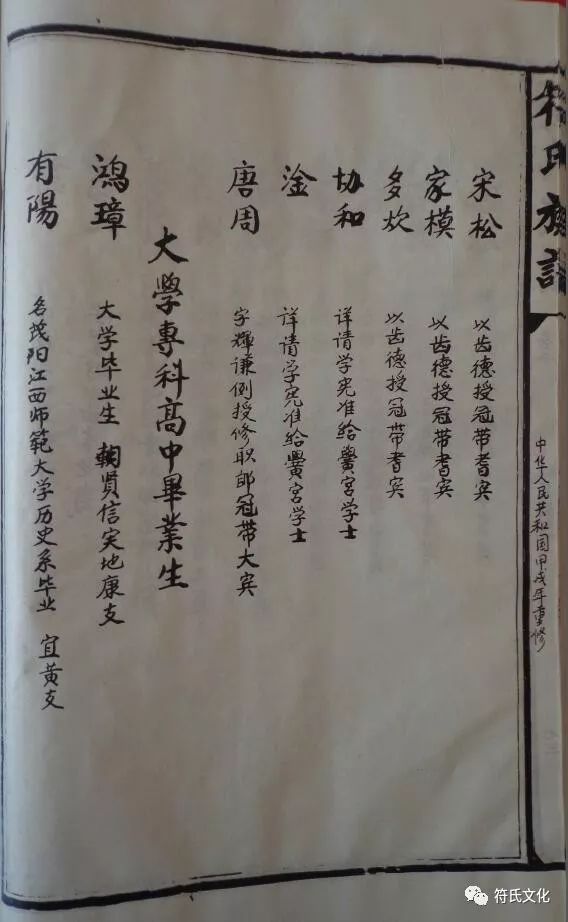 符氏族譜
中华人民共和国甲戌年重修
宋松 以齿德授冠带耆宾
家模 以齿德授冠带耆宾
多炊 以齿德授冠带耆宾
协和 详请学宪准给黉宫学士
淦 详请学宪准给黉宫学士
唐周 字輝谦例授修职郎冠带大宾
大學專科高中畢業生
鴻璋 大学毕业生 賢信实地康支
有陽 名茂阳江西师範大学历史系毕业 宜黄支
符氏文化